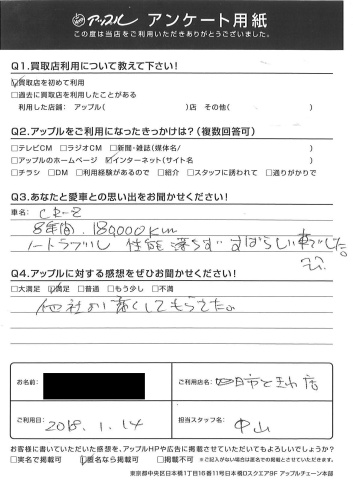 アップル アンケート用紙
この度は当店をご利用いただきありがとうございました。
Q1.買取店利用について教えて下さい!
☑買取店を初めて利用
□過去に買取店を利用したことがある
利用した店舗: アップル( )店 その他( )
Q2.アップルをご利用になったきっかけは?(複数回答可)
□テレビCM □ラジオCM □新聞・雑誌(媒体名/ )
□アップルのホームページ ☑インターネット(サイト名 )
□チラシ □DM □利用経験があるので □紹介 □スタッフに誘われて □通りがかりで
Q3.あなたと愛車との思い出をお聞かせください!
車名: CR-Z
8年間、180,000km
ノートラブルし 性能落ちず すばらしい車でした。
Q4.アップルに対する感想をぜひお聞かせください!
□大満足 ☑満足 □普通 □もう少し □不満
他社より高くしてもらえた。
お名前:
ご利用店名: 四日市ときわ店
ご利用日: 2018.1.14
担当スタッフ名: 中山
お客様に書いていただいた感想を、アップルHPや広告に掲載させていただいてもよろしいでしょうか?
□実名で掲載可 ☑匿名なら掲載可 □掲載不可 ※ご記入がない場合は匿名での掲載とさせていただきます。
東京都中央区日本橋1丁目16番11号日本橋Dスクエア9F アップルチェーン本部